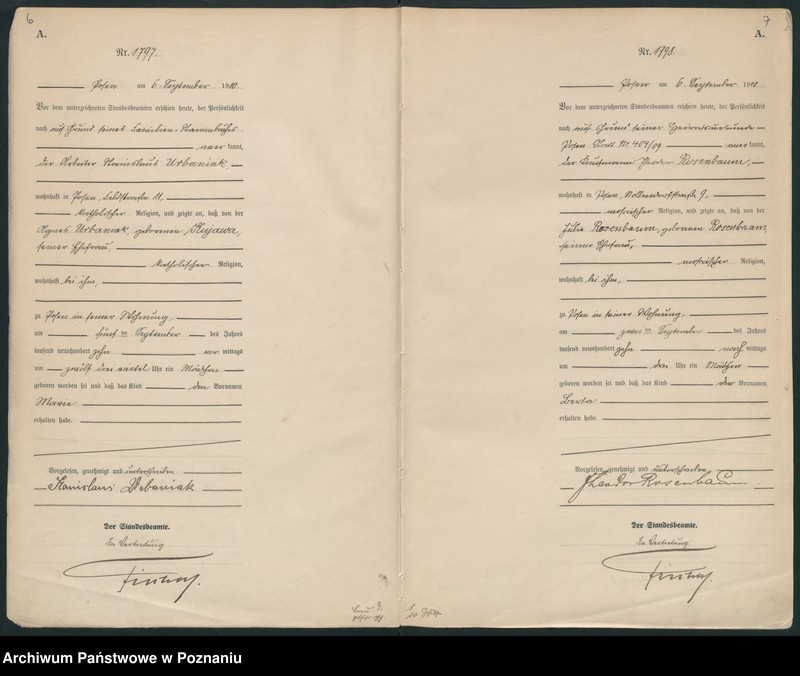 6
A.
Nr. 1797.
Posen am 6. September 1910
Vor dem unterzeichneten Standesbeamten erschien heute, der Persönlichkeit
nach auf Grund seines Familien-Stammbuchs
kannt,
der Arbeiter Stanislaus Urbaniak,
wohnhaft in Posen, Feldstraße 11,
katholischer Religion, und zeigte an, daß von der
Agnes Urbaniak, geborenen Kujawa,
seiner Ehefrau,
katholischer Religion,
wohnhaft bei ihm,
zu Posen in seiner Wohnung,
am fünften September des Jahres
tausend neunhundert zehn vor mittags
um zwölf drei viertel Uhr ein Mädchen
geboren worden sei und daß das Kind den Vornamen
Maria
erhalten habe.
Vorgelesen, genehmigt und unterschrieben
Stanislaus Urbaniak
Der Standesbeamte.
In Vertretung
7
A.
Nr. 1798.
Posen am 6. September 1910
Vor dem unterzeichneten Standesbeamten erschien heute, der Persönlichkeit
nach auf Grund seiner Heiratsurkunde
Posen Nr. 404/09 kannt,
der Kaufmann Theodor Rosenbaum,
wohnhaft in Posen, Nollendorfstraße 9,
mosaischer Religion, und zeigte an, daß von der
Rosenbaum, geborenen Rosenbaum,
seiner Ehefrau,
mosaischer Religion,
wohnhaft bei ihm,
zu Posen in seiner Wohnung,
am zweiten September des Jahres
tausend neunhundert zehn nach mittags
um drei Uhr ein Mädchen
geboren worden sei und daß das Kind den Vornamen
Berta
erhalten habe.
Vorgelesen, genehmigt und unterschrieben
Theodor Rosenbaum
Der Standesbeamte.
In Vertretung
Archiwum Państwowe w Poznaniu